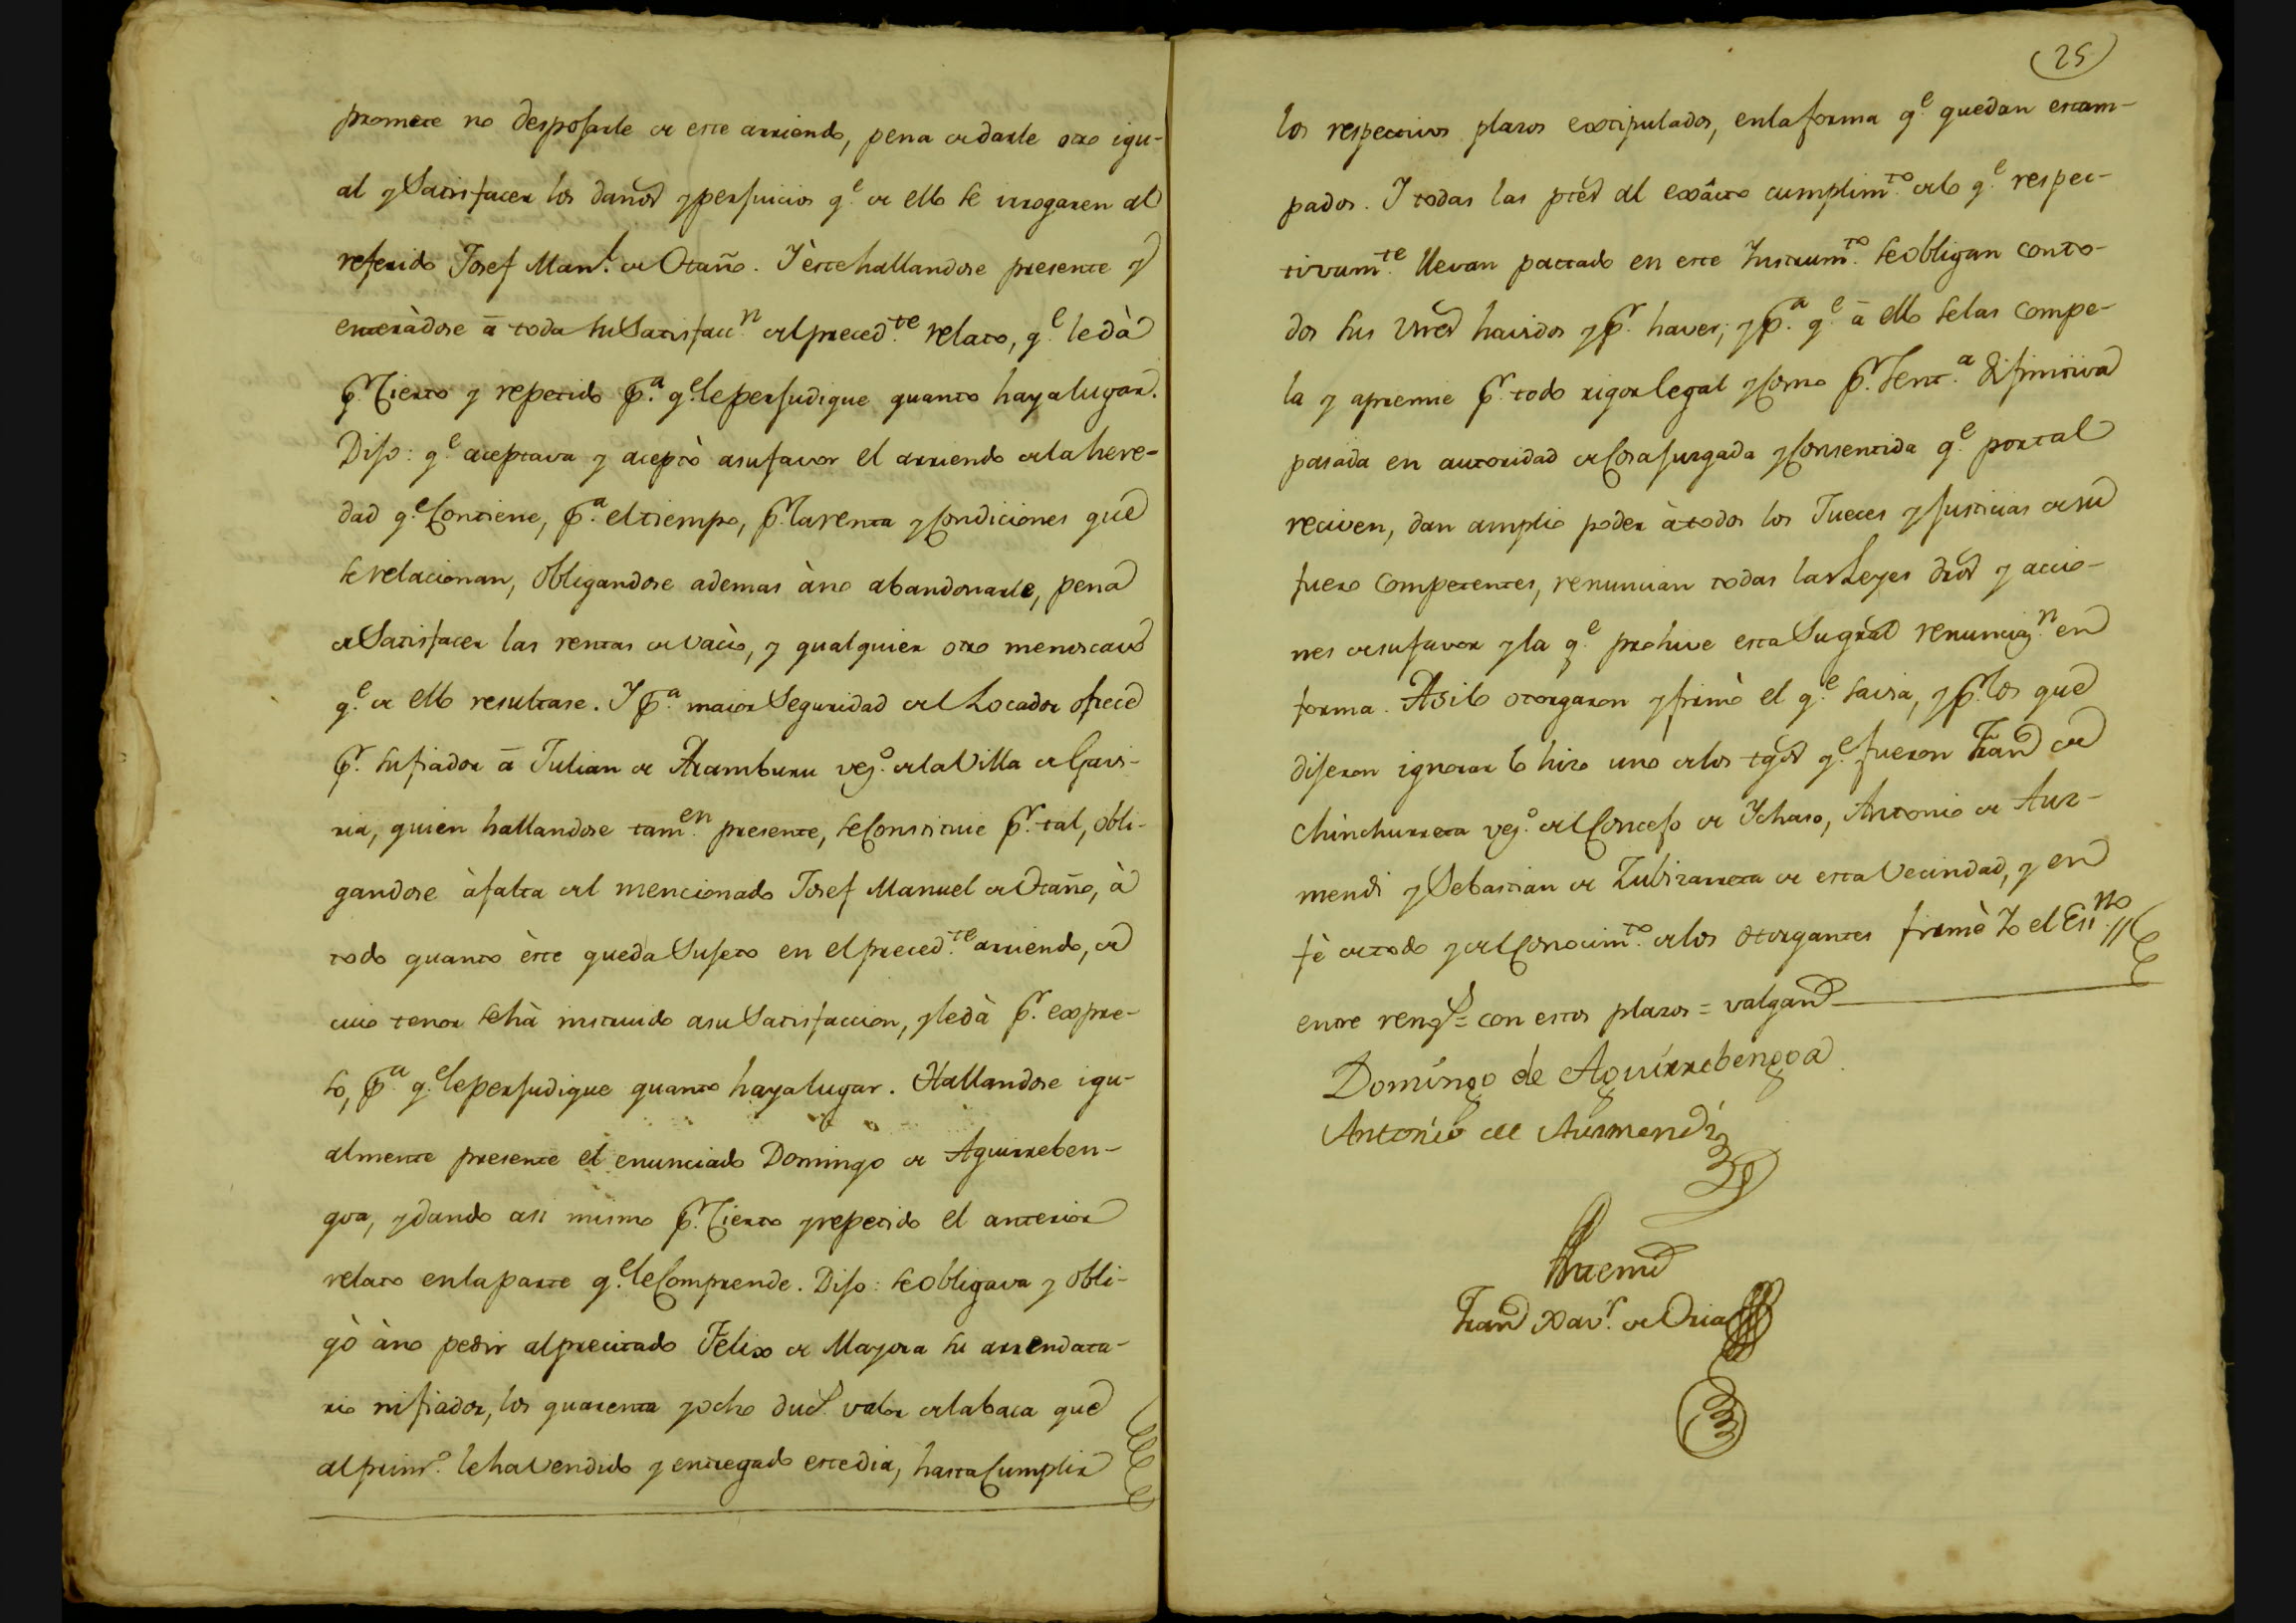 promete no desposarle de este arriendo, pena de darle otro igu-
al y Satisfacer los daños y persuicios q.e de ello se irrogaren al
referido Josef Man.l de Otaño. Y èste hallandose presente y
enteràdose ā toda su Satisfacc.n del preced.te relato, q.e le dà
p.r Cierto y repetido p.a q.e le persudique quanto haya lugar.
Diso: q.e aceptava y aceptò a su favor el arriendo de la here-
dad q.e Contiene, p.a el tiempo, p.r la renta y Condiciones que
se relacionan, obligandose ademas à no abandonarle, pena
de Satisfacer las rentas de vacìo, y qualquier otro menoscavo
q.e de ello resultase. Y p.a maior Seguridad del Locador ofrece
p.r su fiador ā Julian de Aramburu vez.o de la Villa de Gavi-
ria, quien hallandose tam.en presente, se Constituie p.r tal, obli-
gandose à falta del mencionado Josef Manuel de Otaño, à
todo quanto èste queda Suseto en el preced.te arriendo, de
cuio tenor se hà instruido a su Satisfaccion, y le dà p.r expre-
so, p.a q.e le persudique quanto haya lugar. Hallandose igu-
almente presente el enunciado Domingo de Aguirreben-
goa, y dando asi mismo p.r Cierto y repetido el anterior
relato en la parte q.e le Comprende. Diso: se obligava y obli-
gò à no pedir al precitado Felix de Mayora su arrendata-
rio ni fiador, los quarenta y ocho duc.s valor de la baca que
al prim.o le ha Vendido y entregado este dia, hasta Cumplir
25
los respectivos plazos extipulados, en la forma q.e quedan estam-
pados. Y todas las ptes al exâcto cumplim.to de lo q.e respec-
tivam.te llevan pactado en este Instrum.to se obligan con to-
dos sus vnes havidos y p.r haver; y p.a q.e ā ello se las compe-
la y apremie p.r todo rigor legal y Como p.r Sent.a difinitiva
pasada en autoridad de Cosa surgada y Consentida q.e por tal
reciven, dan amplio poder à todos los Jueces y susticias de su
fuero competentes, renuncian todas las Leyes dros y accio-
nes de su favor y la q.e prohive esta Su gral renunciaz.n en
forma. Asi lo otorgaron y firmò el q.e savia, y p.r los que
diseron ignorar lo hizo uno de los tgos q.e fueron Fran.co de
Chinchurreta vez.o del Conceso de Ychaso, Antonio de Aur-
mendi y Sebastian de Zubizarreta de esta Vecindad, y en
fè de todo y del Conocim.to de los otorgantes firmè Yo el Ess.no
entre reng.s = con estos plazos = valgan
Domingo de Aguirrebengoa
Antonio de Aurmendi
Ante mi
Fran.co Xav.r de Oria